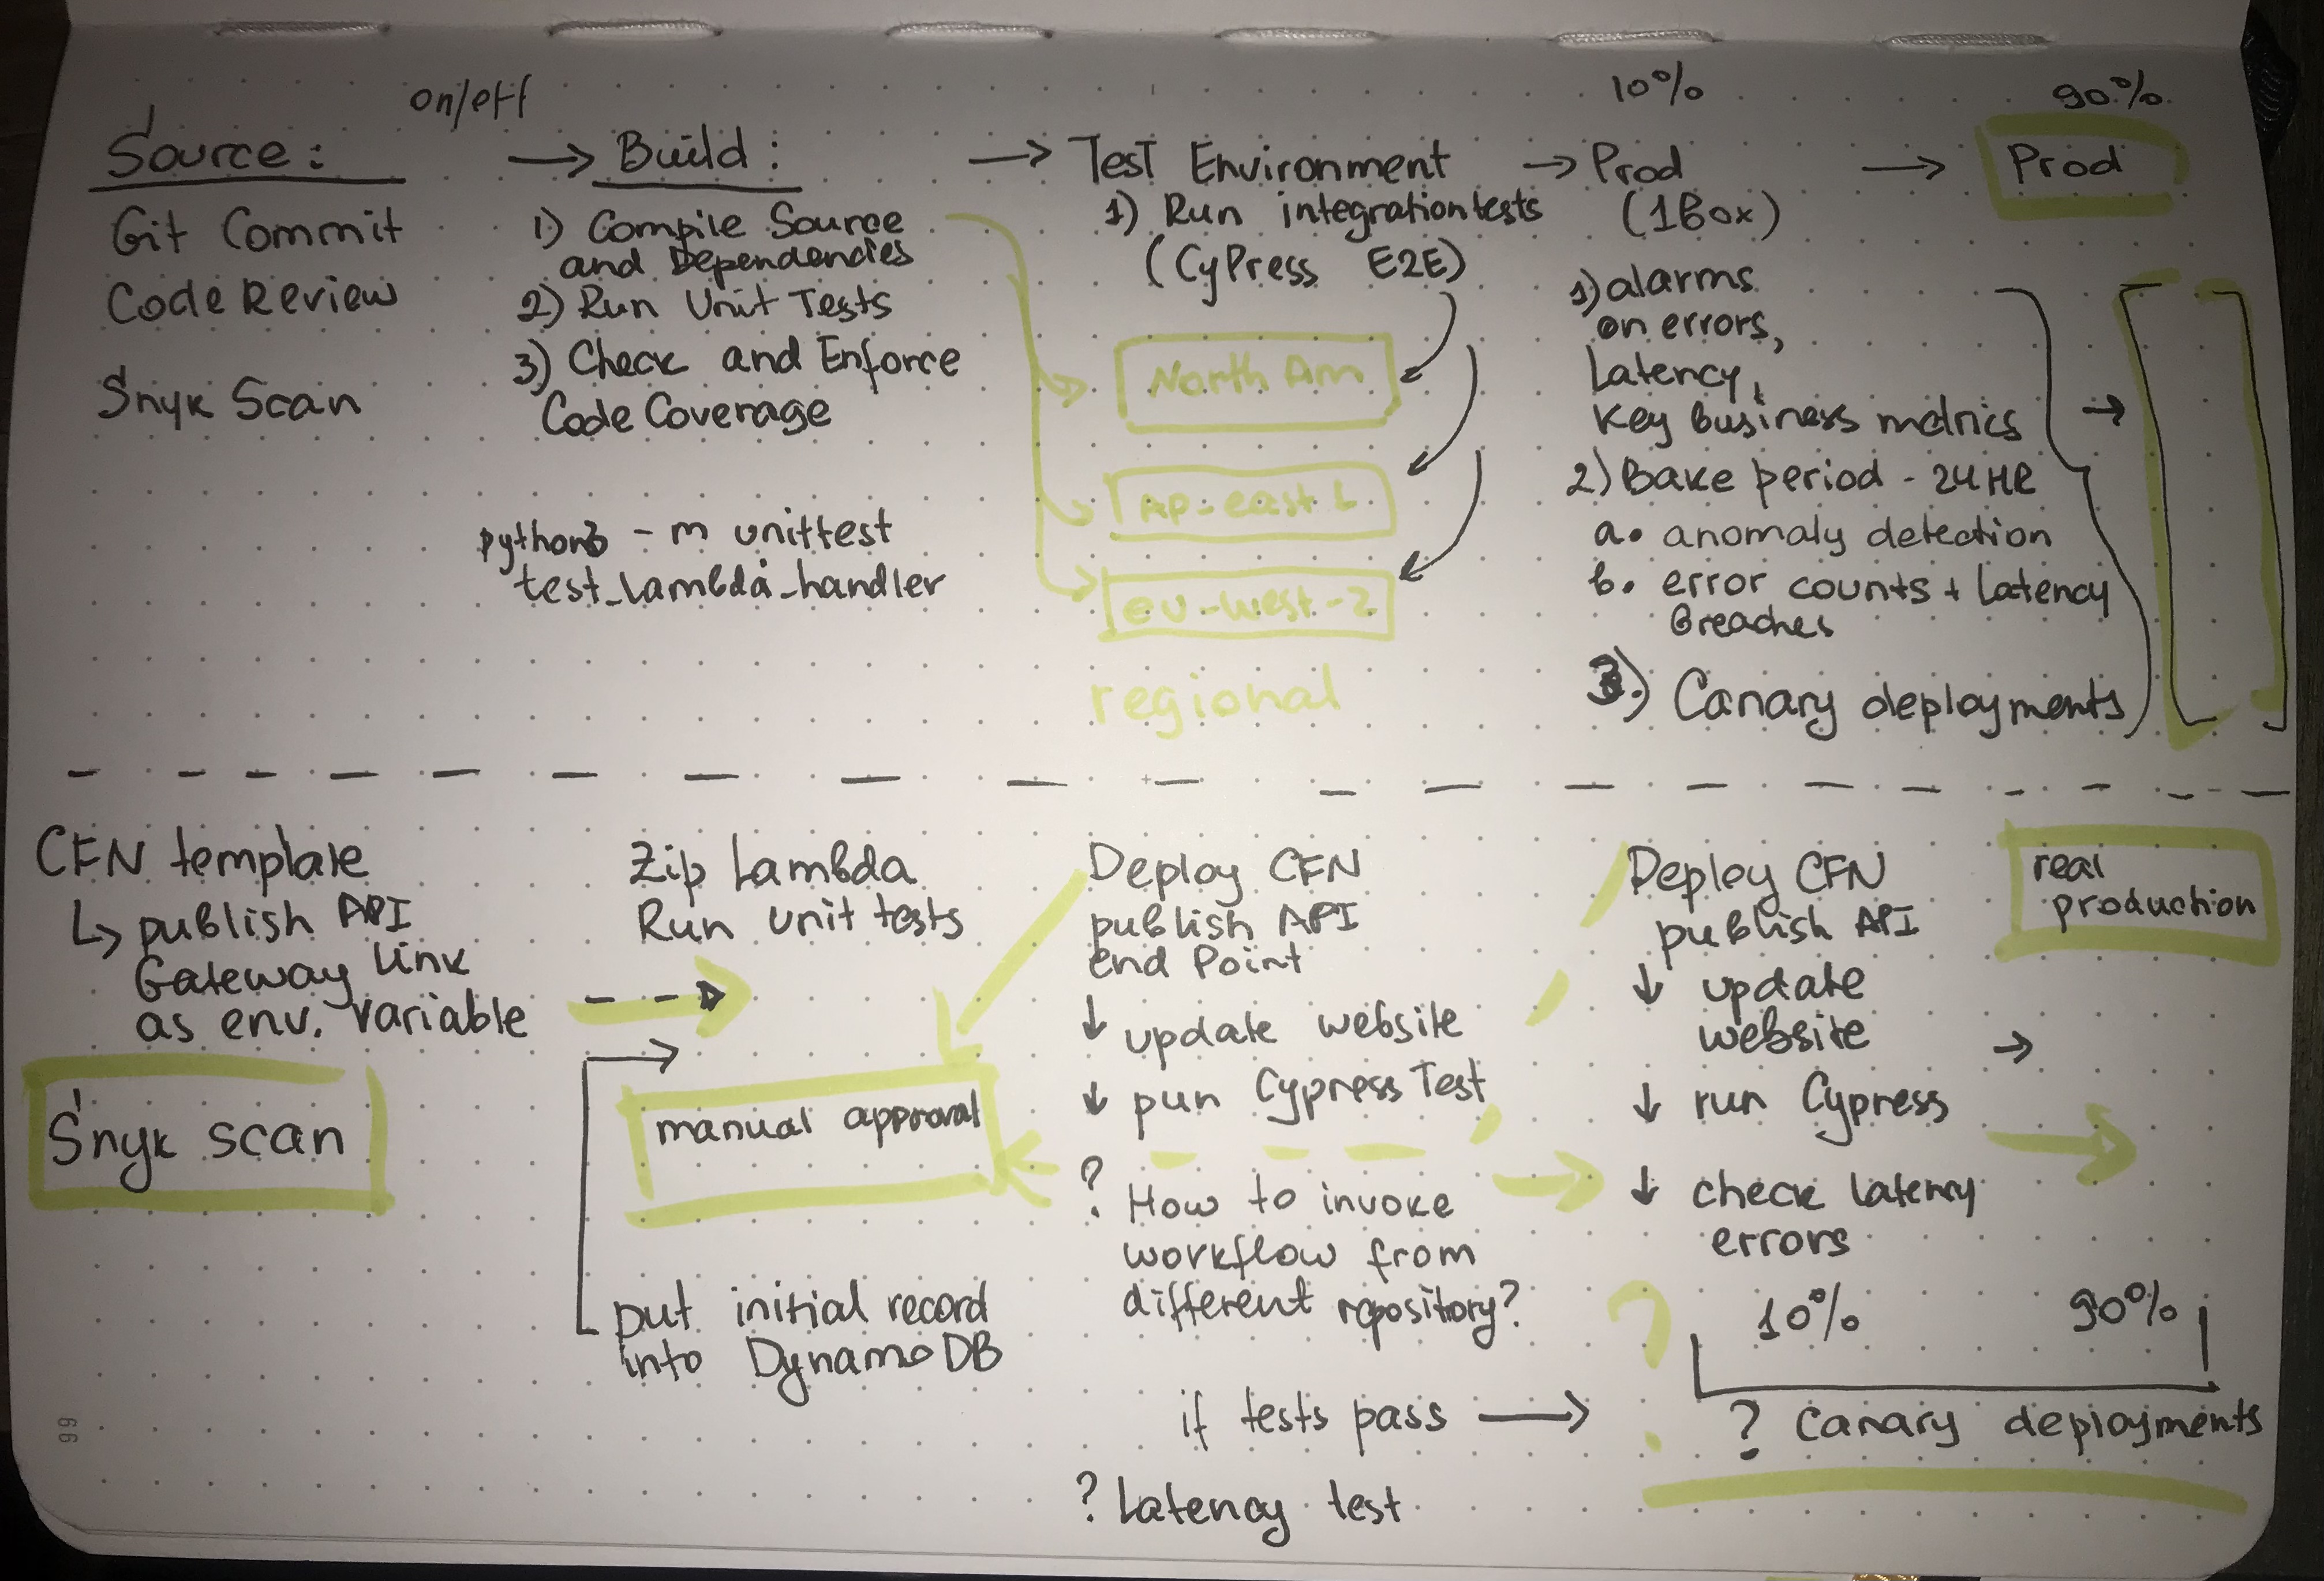 on/off
10%
90%
Source:
→ Build:
→ Test Environment
→ Prod
→ Prod
Git Commit
Code Review
Snyk Scan
1) Compile Source
and Dependencies
2) Run Unit Tests
3) Check and Enforce
Code Coverage
python3 -m unittest
test_lambda_handler
1) Run integration tests
(CyPress E2E)
North Am
eu-west-2
regional
(1Box)
1) alarms
on errors,
Latency,
key business metrics
2) Bake period - 24HR
a. anomaly detection
b. error counts + latency
Breaches
3.) Canary deployments
CFN template
↳ publish API
Gateway link
as env. variable
Snyk scan
Zip Lambda
Run unit tests
manual approval
put initial record
into DynamoDB
Deploy CFN
publish API
end Point
↓ update website
↓ run Cypress Test
? How to invoke
workflow from
different repository?
if tests pass →
? Latency test
Deploy CFN
publish API
↓ update
website
↓ run Cypress
↓ check latency
errors
10% 90%
? Canary deployments
real
production
99